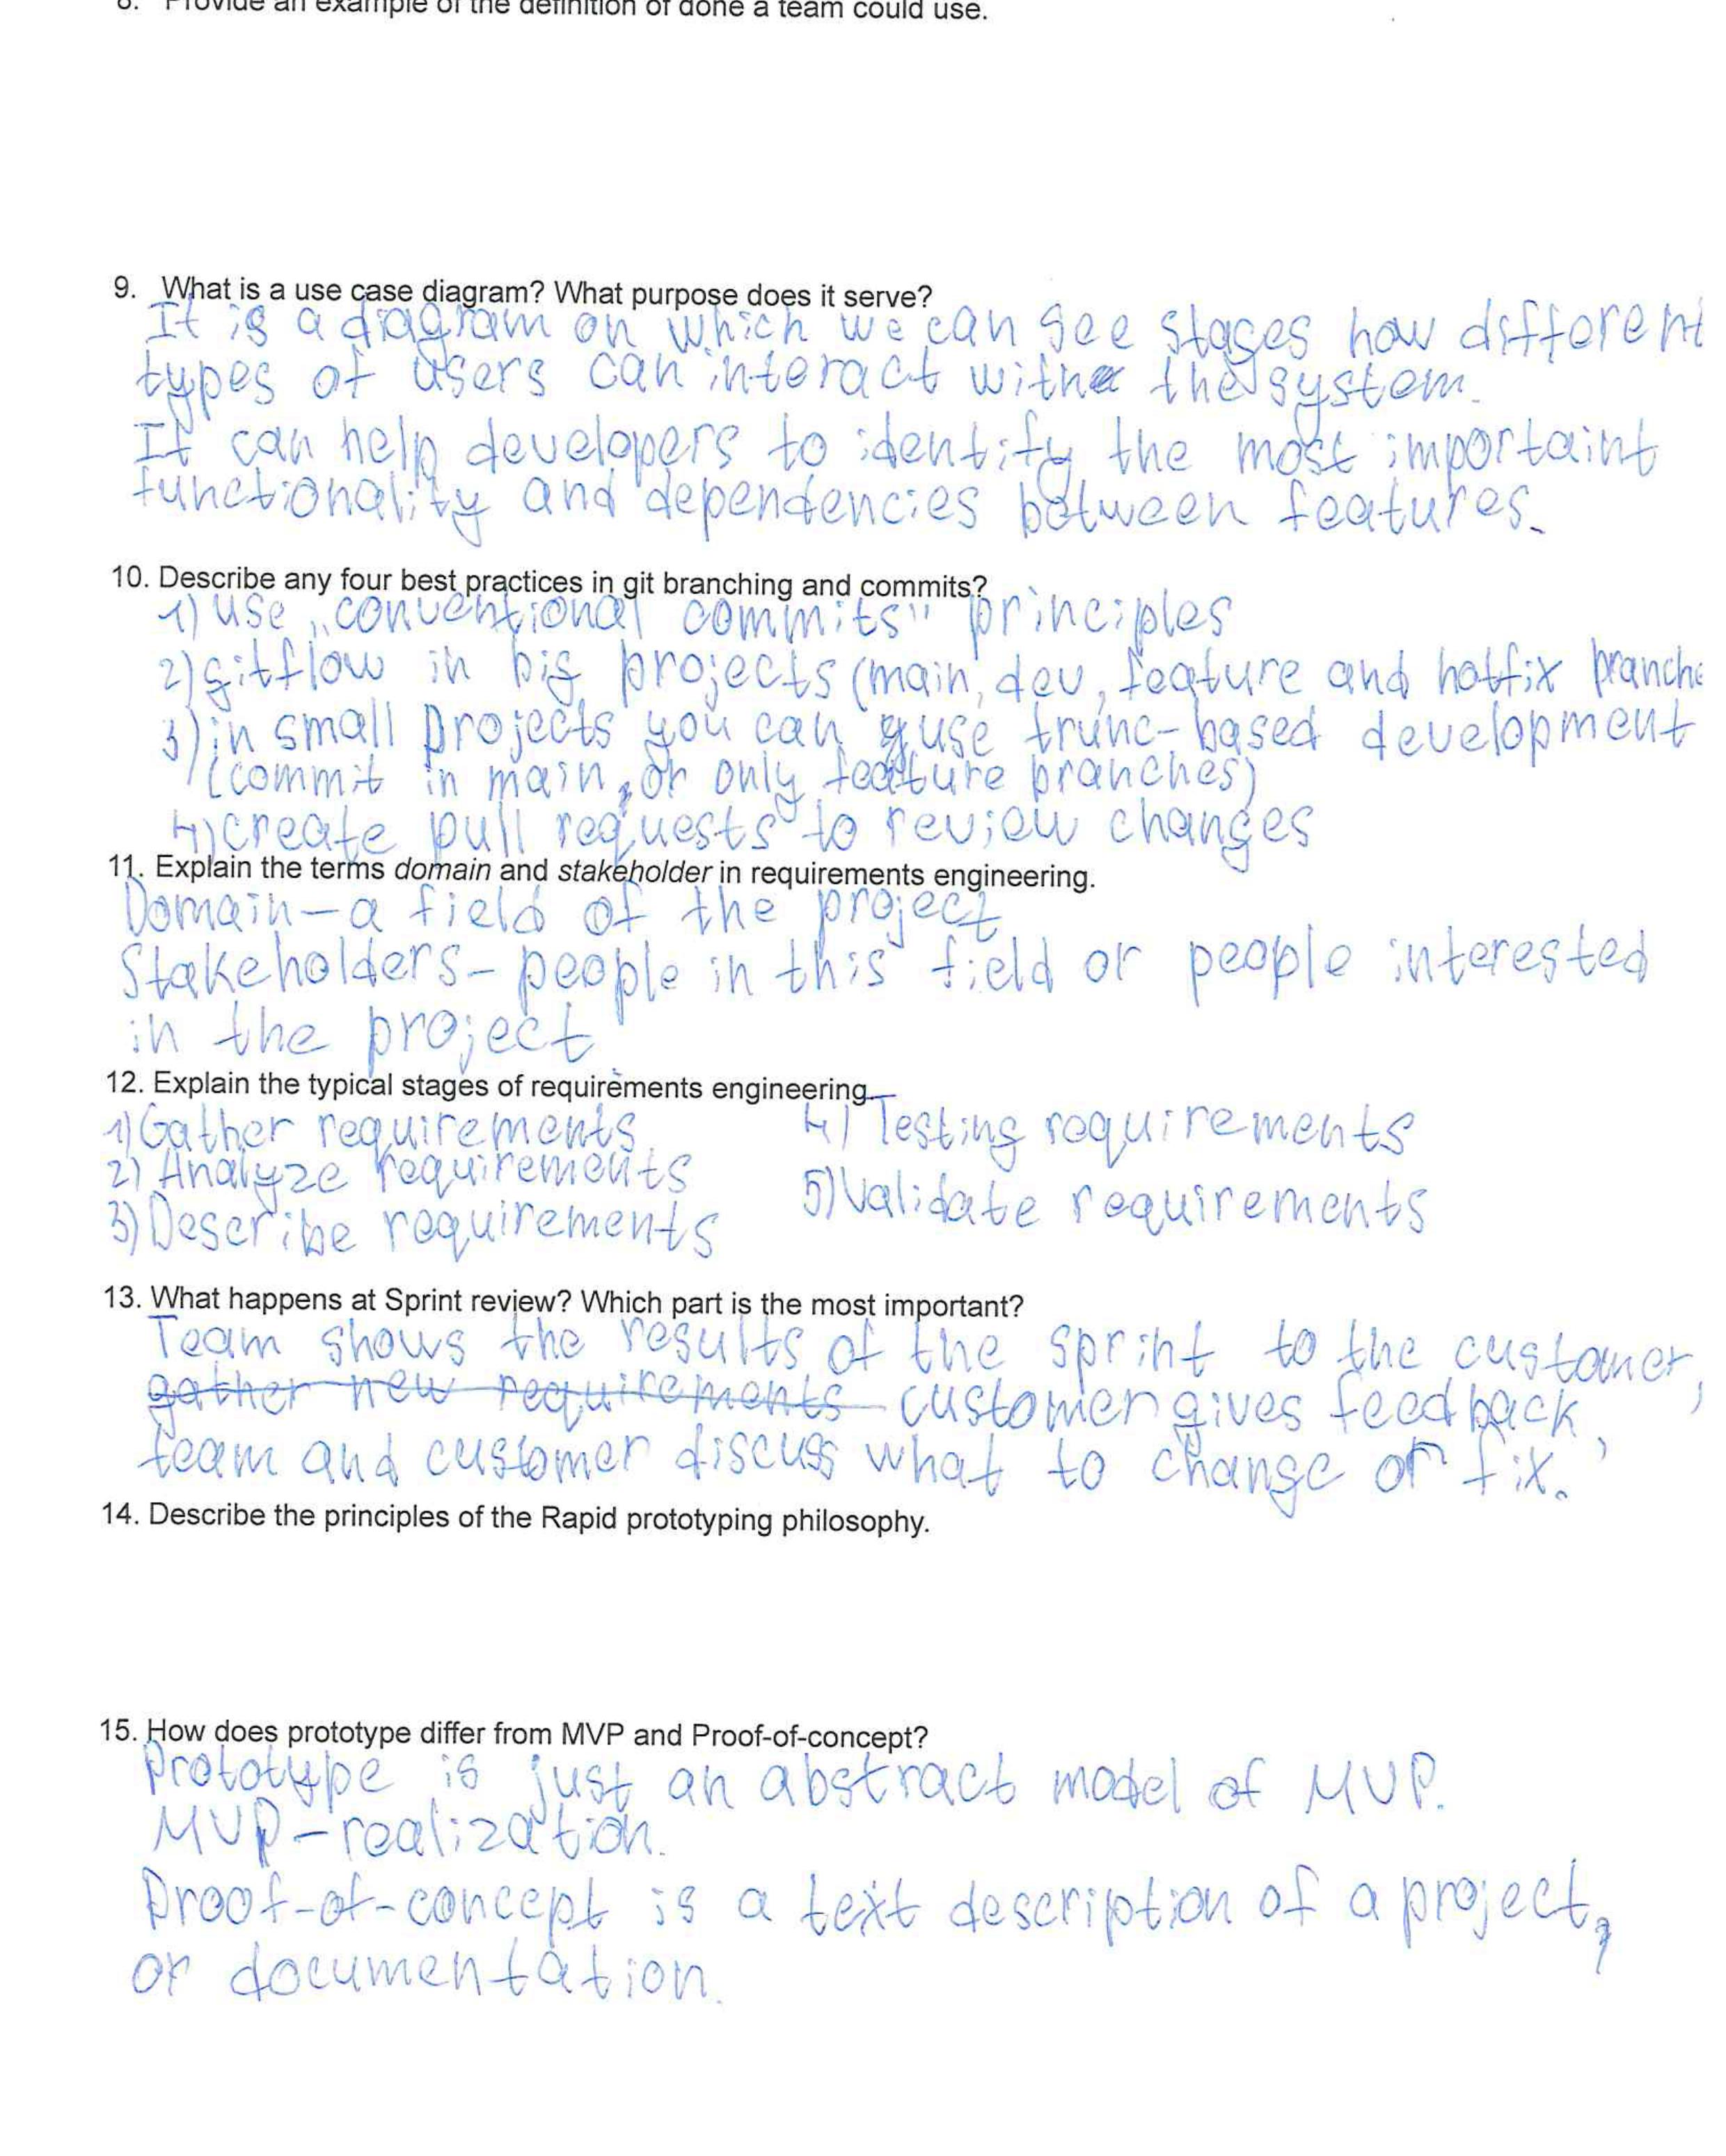 8. Provide an example of the definition of done a team could use.
9. What is a use case diagram? What purpose does it serve?
It is a diagram on which we can see stages how different
types of users can interact with the system.
It can help developers to identify the most importaint
functionality and dependencies between features.
10. Describe any four best practices in git branching and commits?
1) use „conventional commits" principles
2) gitflow in big projects (main, dev, feature and hotfix branche
3) in small projects you can use trunc-based development
(commit in main, or only feature branches)
4) create pull requests to review changes
11. Explain the terms domain and stakeholder in requirements engineering.
Domain – a field of the project
Stakeholders – people in this field or people interested
in the project
12. Explain the typical stages of requirements engineering.
1) Gather requirements
2) Analyze requirements
3) Describe requirements
4) Testing requirements
5) Validate requirements
13. What happens at Sprint review? Which part is the most important?
Team shows the results of the sprint to the customer,
gather new requirements customer gives feedback,
team and customer discuss what to change or fix.
14. Describe the principles of the Rapid prototyping philosophy.
15. How does prototype differ from MVP and Proof-of-concept?
Prototype is just an abstract model of MVP.
MVP – realization.
Proof-of-concept is a text description of a project,
or documentation.